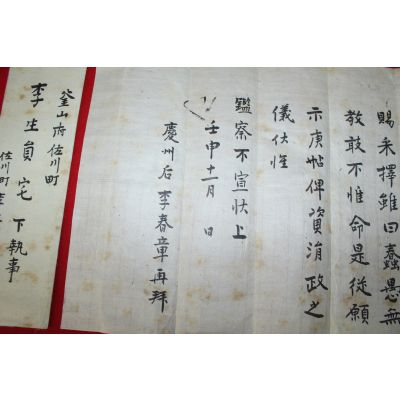 賜采擇雖曰蠢愚無
敎敢不惟命是從願
示庚帖俾資涓政之
儀伏惟
鑑察不宣狀上
壬申十一月 日
慶州后李春章再拜
釜山府佐川町
李生員宅 下執事
佐川町李